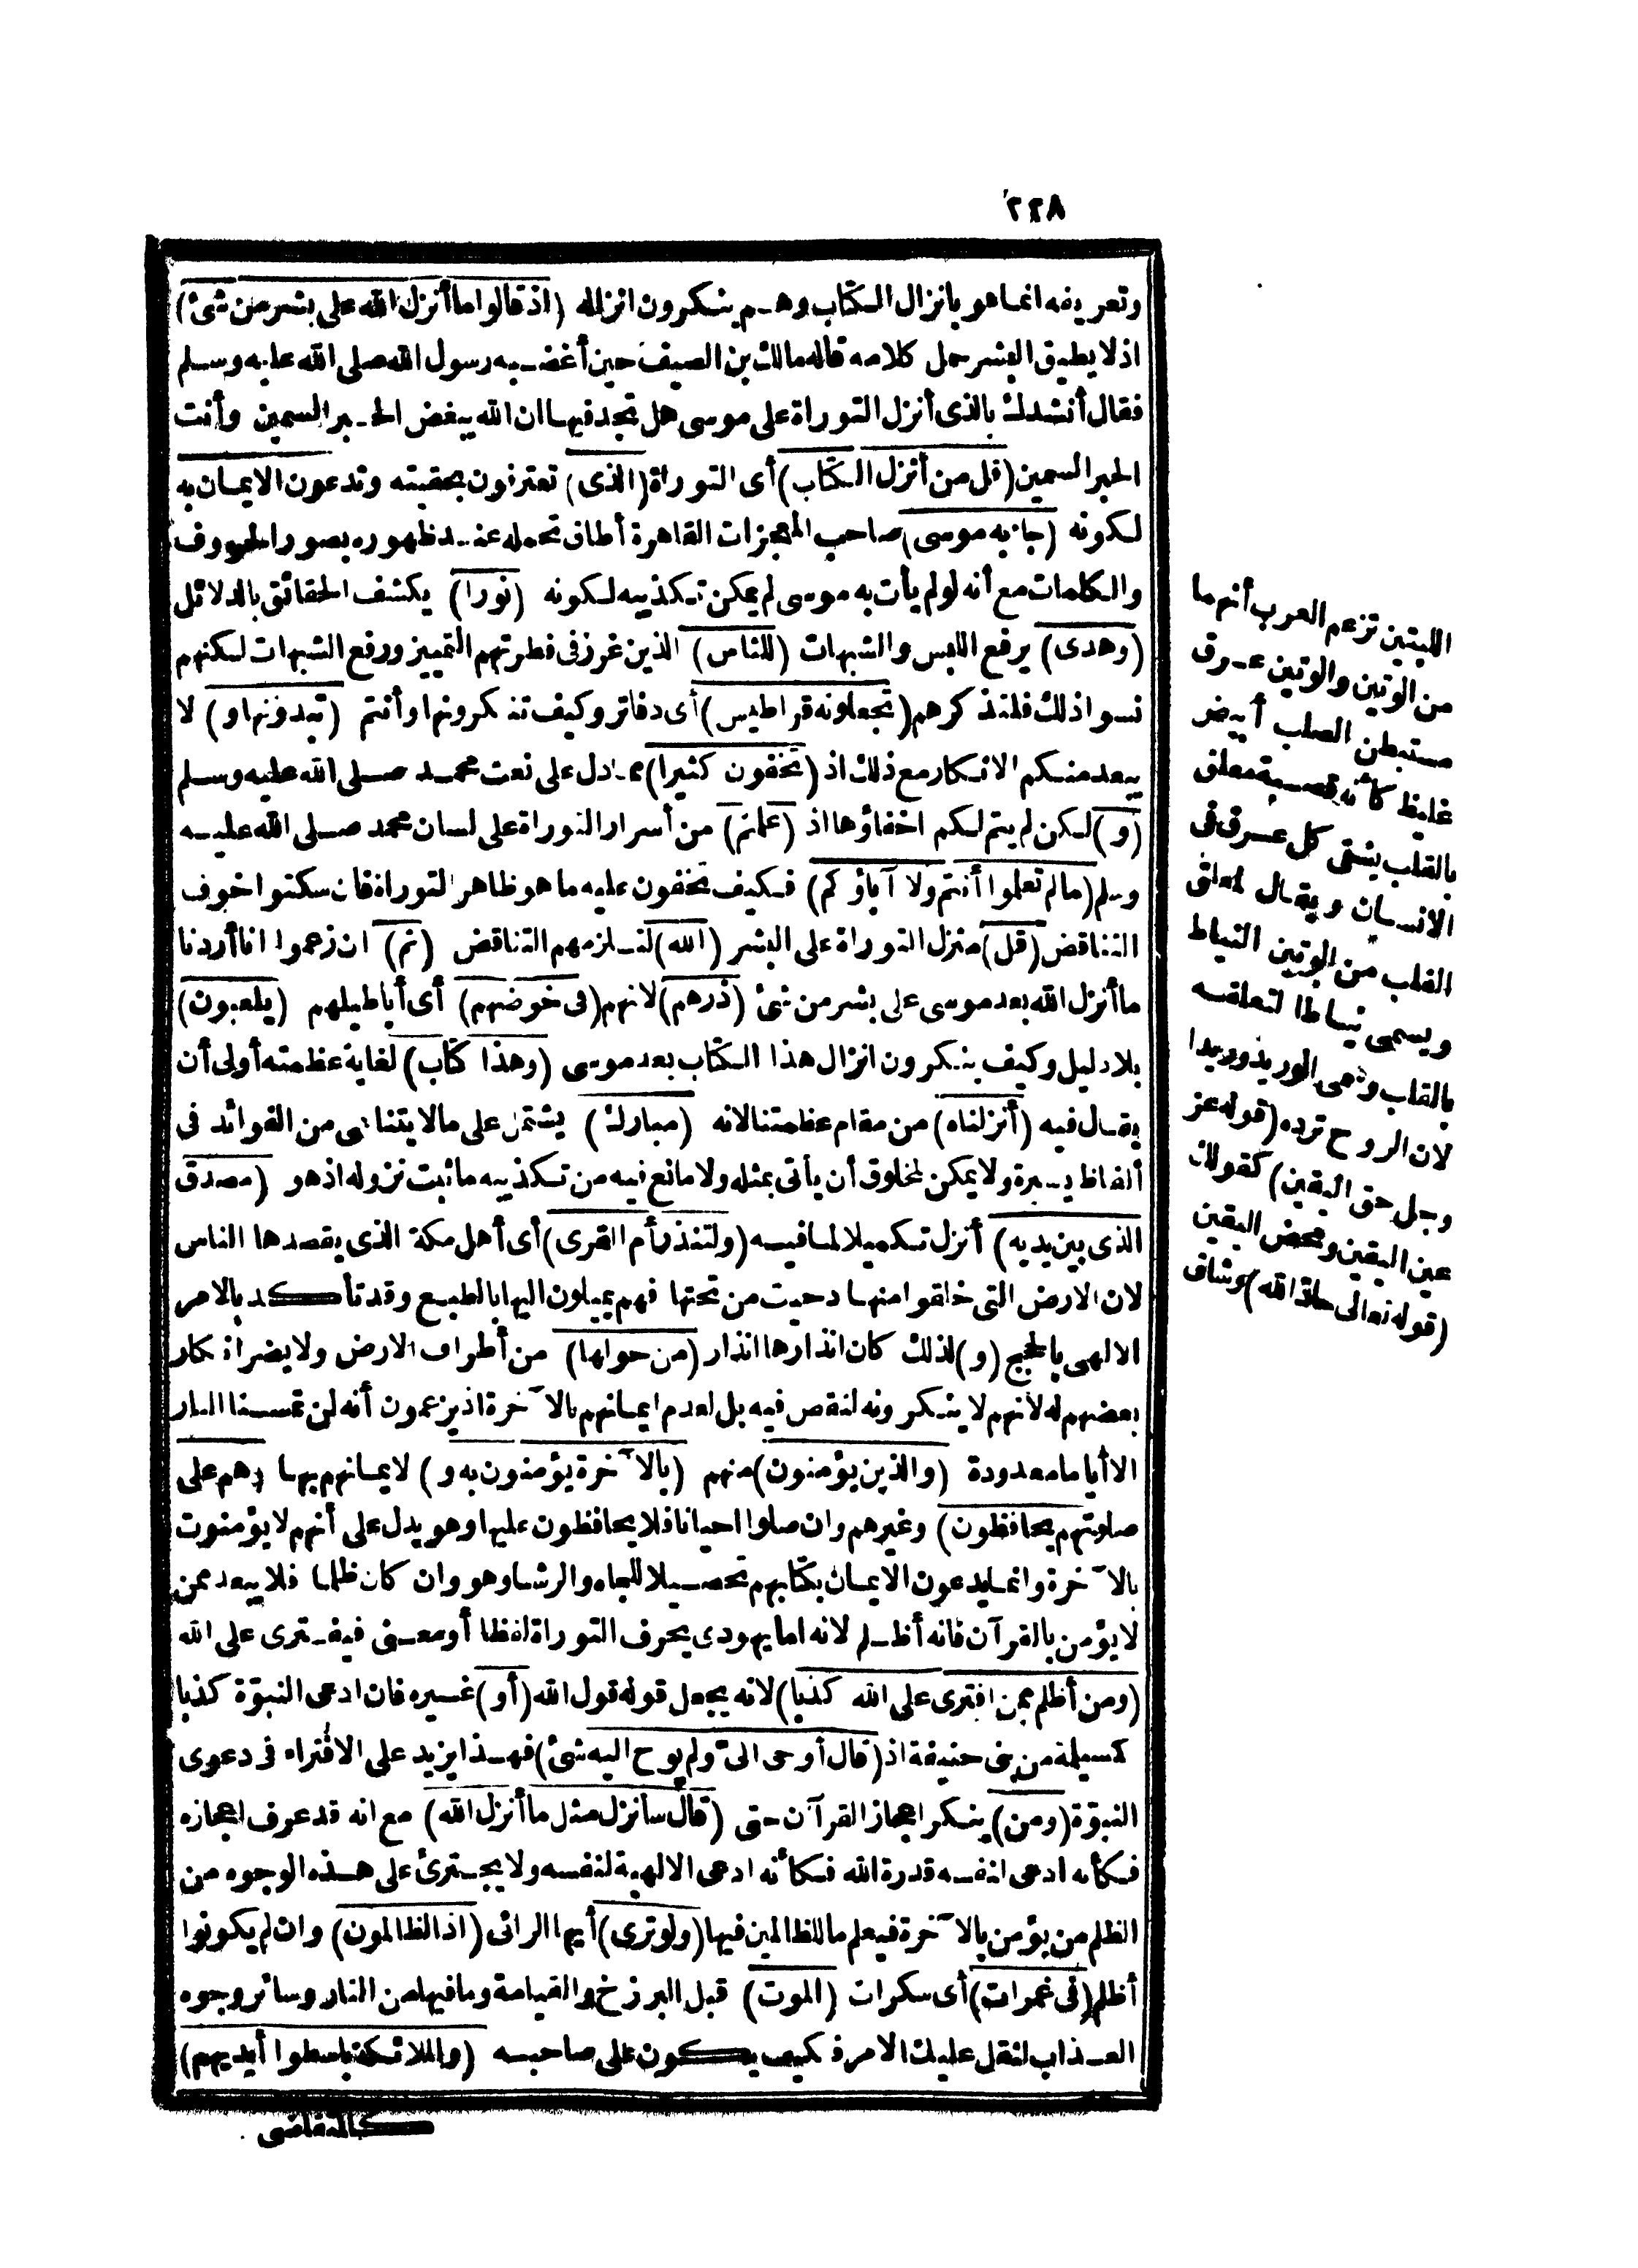 ٢٢٨
وتعريفه انما هو بانزال الكتاب وهم ينكرون انزاله (اذ قالوا ما أنزل الله على بشر من شئ)
اذ لا يطيق البشر حمل كلامه قاله مالك بن الصيف حين أغضبه رسول الله صلى الله عليه وسلم
فقال أنشدك بالذى أنزل التوراة على موسى هل تجد فيها ان الله يبغض الحبر السمين وأنت
الحبر السمين (قل من أنزل الكتاب) أى التوراة (الذى) تعترفون بحقيته وتدعون الايمان به
لكونه (جاء به موسى) صاحب المعجزات القاهرة أطاق تحمله عند ظهوره بصور الحروف
والكلمات مع أنه لو لم يأت به موسى لم يمكن تكذيبه لكونه (نورا) يكشف الحقائق بالدلائل
(وهدى) يرفع اللبس والشبهات (للناس) الذين غرز فى فطرتهم التمييز ورفع الشبهات لكنهم
نسوا ذلك فلتذكرهم (تجعلونه قراطيس) أى دفاتر وكيف تنكرونها وأنتم (تبدونها و) لا
يبعد منكم الانكار مع ذلك اذ (تخفون كثيرا) مما دل على نعت محمد صلى الله عليه وسلم
(و) لكن لم يتم لكم اخفاؤها اذ (علمتم) من أسرار التوراة على لسان محمد صلى الله عليه
وسلم (ما لم تعلموا أنتم ولا آباؤكم) فكيف تخفون عليه ما هو ظاهر التوراة فان سكتوا خوف
التناقض (قل) منزل التوراة على البشر (الله) لتلزمهم التناقض (ثم) ان زعموا انا أردنا
ما أنزل الله بعد موسى على بشر من شئ (ذرهم) لانهم (فى خوضهم) أى أباطيلهم (يلعبون)
بلا دليل وكيف ينكرون انزال هذا الكتاب بعد موسى (وهذا كتاب) لغاية عظمته أولى أن
يقال فيه (أنزلناه) من مقام عظمتنا لانه (مبارك) يشتمل على ما لا يتناهى من الفوائد فى
ألفاظ يسيرة ولا يمكن لمخلوق أن يأتى بمثله ولا مانع فيه من تكذيبه ما ثبت نزوله اذ هو (مصدق
الذى بين يديه) أنزل تكميلا لما فيه (ولتنذر أم القرى) أى أهل مكة الذى يقصدها الناس
لان الارض التى خلقوا منها دحيت من تحتها فهم يميلون اليها بالطبع وقد تأكد بالامر
الالهى بالحج (و) لذلك كان انذارها انذار (من حولها) من أطراف الارض ولا يضر انكار
بعضهم له لانهم لا ينكرونه لنقص فيه بل لعدم ايمانهم بالآخرة اذ يزعمون أنه لن تمسنا النار
الا أياما معدودة (والذين يؤمنون) منهم (بالآخرة يؤمنون به و) لايمانهم بها (هم على
صلوتهم يحافظون) وغيرهم وان صلوا احيانا فلا يحافظون عليها وهو يدل على أنهم لا يؤمنون
بالآخرة وانما يدعون الايمان بكتابهم تحصيلا للجاه والرشا وهو وان كان ظلما فلا يبعد ممن
لا يؤمن بالقرآن فانه أظلم لانه اما يهودى يحرف التوراة لفظا أو معنى فيفترى على الله
(ومن أظلم ممن افترى على الله كذبا) لانه يجعل قوله قول الله (أو) غيره فان ادعى النبوّة كذبا
كمسيلمة من بنى حنيفة اذ (قال أوحى الىّ ولم يوح اليه شئ) فهذا يزيد على الافتراء فى دعوى
النبوّة (ومن) ينكر اعجاز القرآن حتى (قال سأنزل مثل ما أنزل الله) مع انه قد عرف اعجازه
فكأنه ادعى لنفسه قدرة الله فكأنه ادعى الالهية لنفسه ولا يجترئ على هذه الوجوه من
الظلم من يؤمن بالآخرة فيعلم ما للظالمين فيها (ولو ترى) أيها الرائى (اذ الظالمون) وان لم يكونوا
أظلم (فى غمرات) أى سكرات (الموت) قبل البرزخ والقيامة وما فيها من النار وسائر وجوه
العذاب لثقل عليك الامر فكيف يكون على صاحبه (والملائكة باسطوا أيديهم)
كالمتقاضى
الليتين تزعم العرب أنهما
من الوتين والوتين عرق
مستبطن الصلب أبيض
غليظ كأنه قصبة معلق
بالقلب يسقى كل عرق فى
الانسان ويقال لمعلق
القلب من الوتين النياط
ويسمى نياطا لتعلقه
بالقلب وسمى الوريد وريدا
لان الروح ترده (قوله عز
وجل حق اليقين) كقولك
عين اليقين ومحض اليقين
(قوله تعالى حاذ الله) وشاق